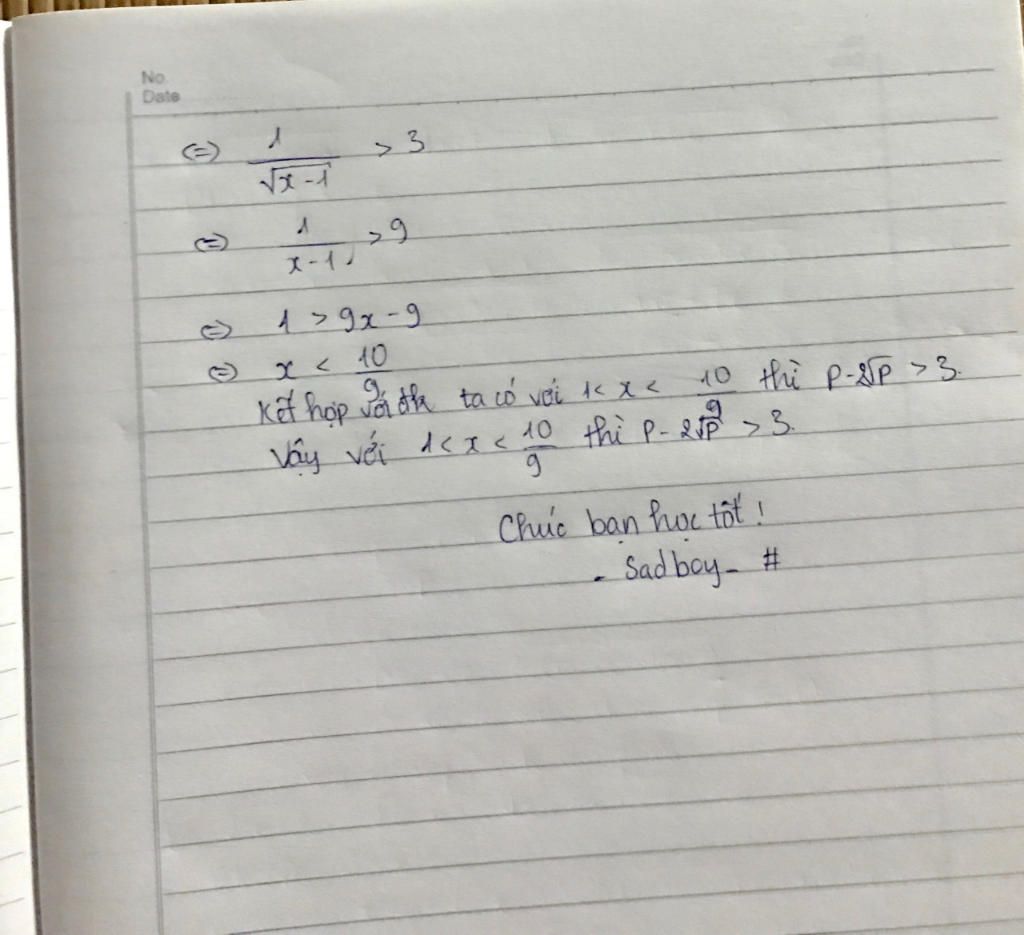 No
Date
(=) 1/√x-1 > 3
(=) 1/x-1 > 9
(=) 1 > 9x - 9
(=) x < 10/9
Kết hợp với đk ta có với 1 < x < 10/9 thì P - 2√P > 3.
Vậy với 1 < x < 10/9 thì P - 2√P > 3.
Chúc bạn học tốt !
- Sad boy - #